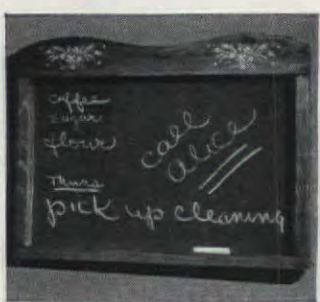 coffee
sugar
flour
call
alice
Thurs
pick up cleaning